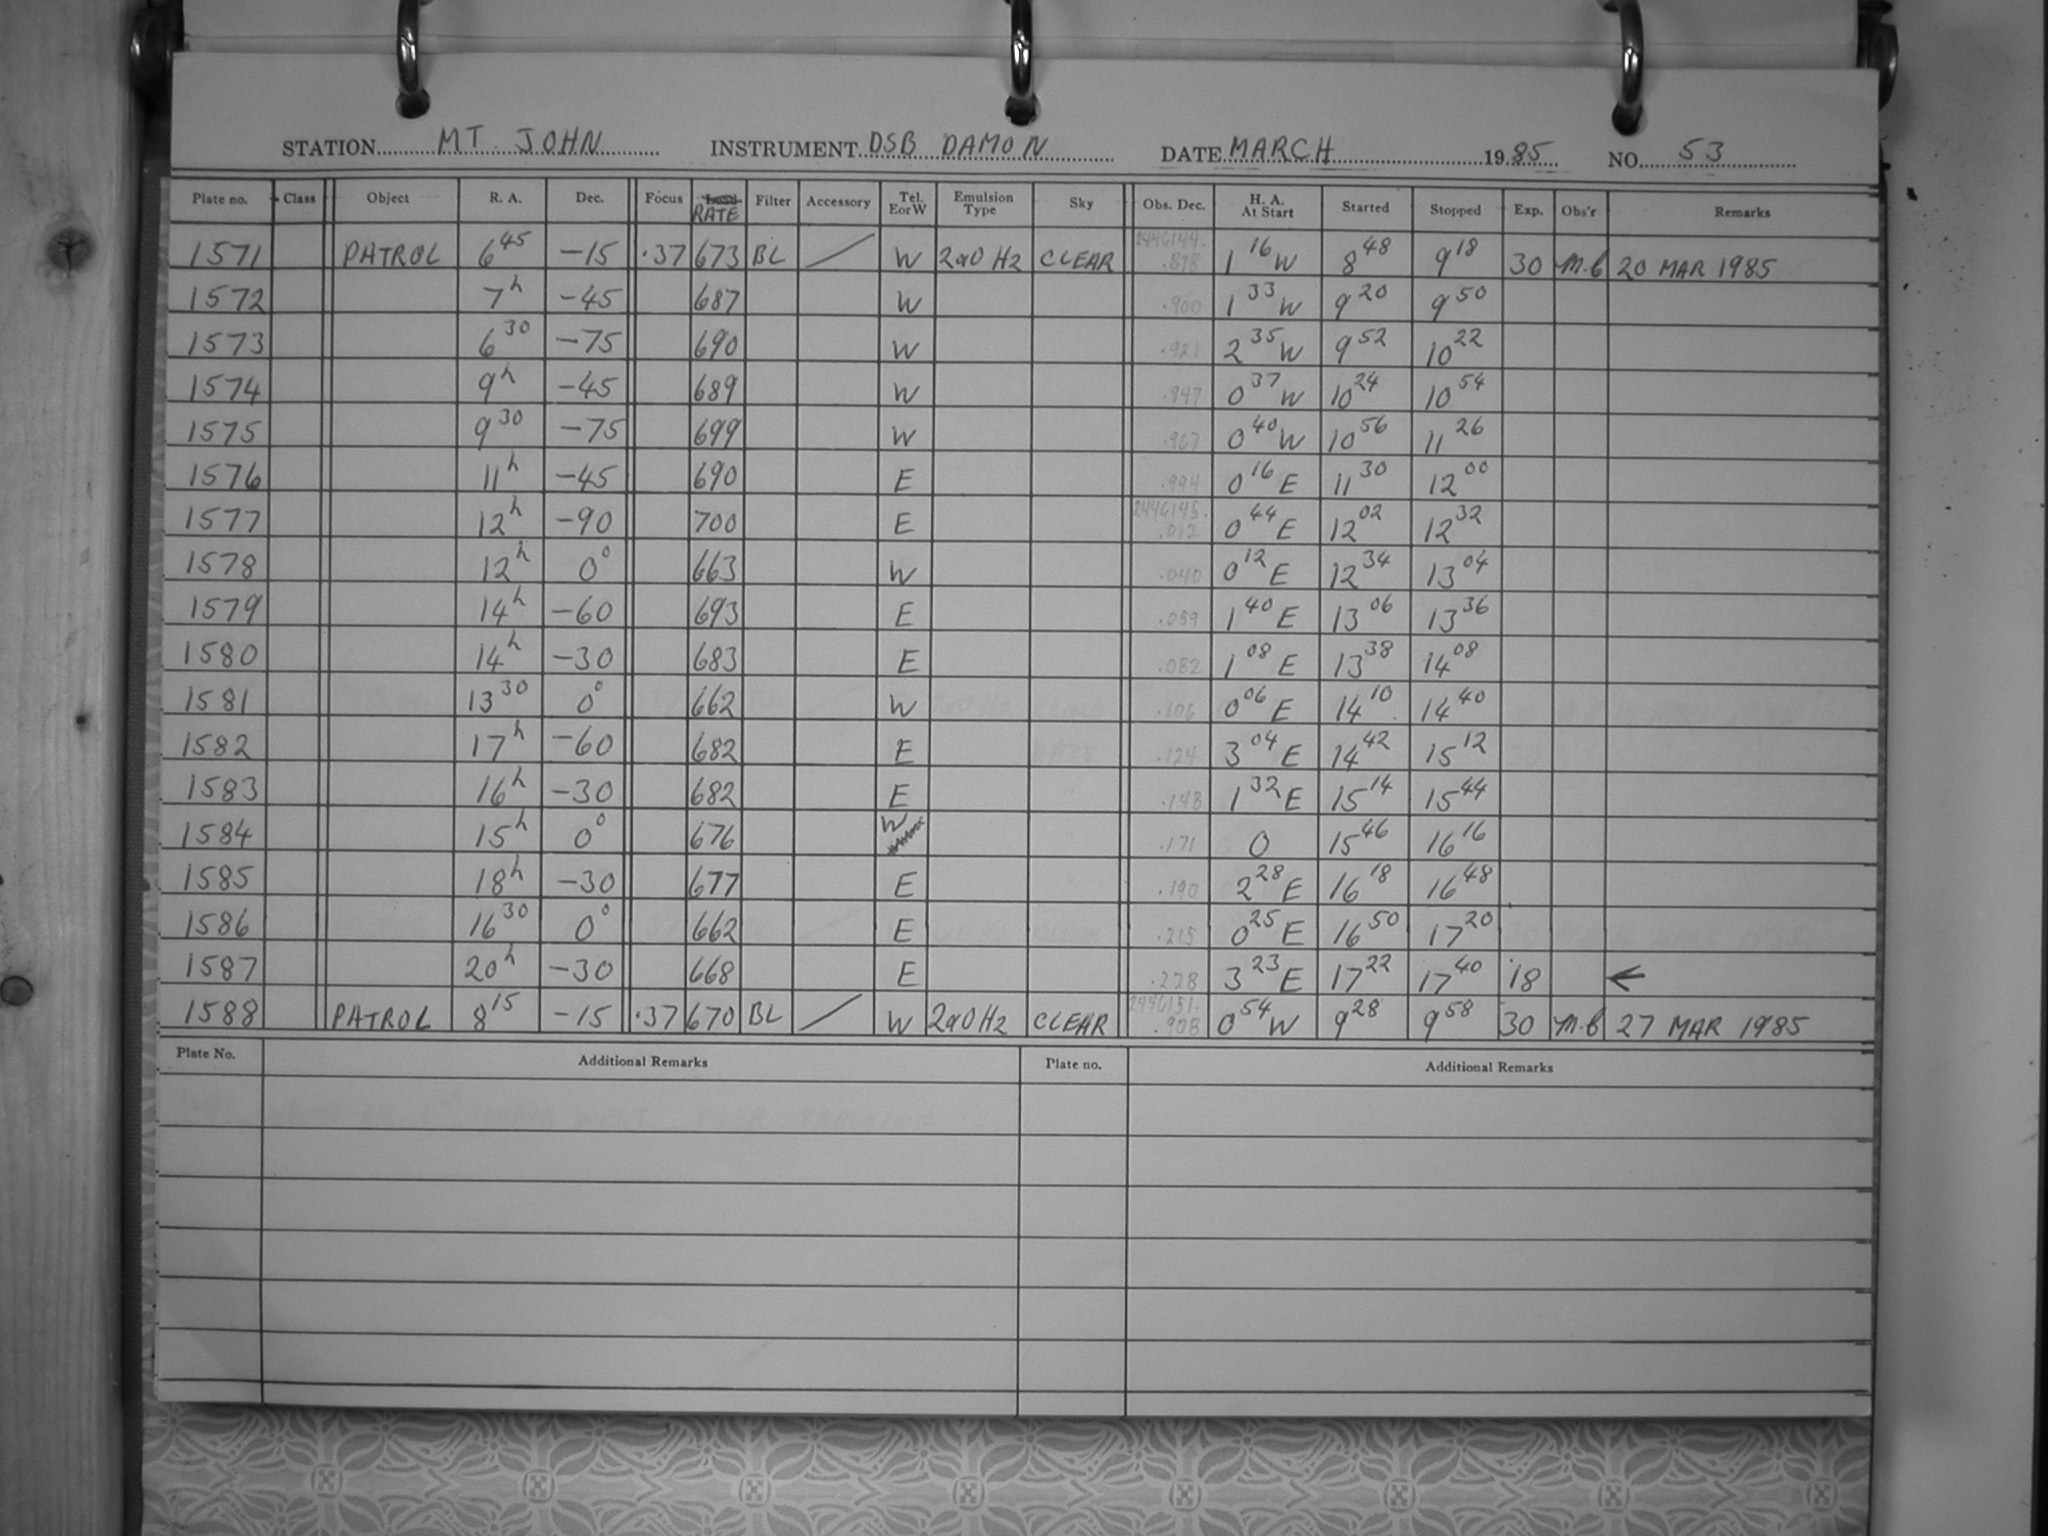 STATION MT. JOHN INSTRUMENT DSB DAMON DATE MARCH 1985 NO. 53
Plate no. Class Object R. A. Dec. Focus RATE Filter Accessory Tel. EorW Emulsion Type Sky Obs. Dec. H. A. At Start Started Stopped Exp. Obs'r Remarks
1571 PATROL 6 45 -15 .37 673 BL / W 2aO H2 CLEAR 2446144. .878 1 16 W 8 48 9 18 30 M.C 20 MAR 1985
1572 7h -45 687 W .900 1 33 W 9 20 9 50
1573 6 30 -75 690 W .921 2 35 W 9 52 10 22
1574 9h -45 689 W .947 0 37 W 10 24 10 54
1575 9 30 -75 699 W .967 0 40 W 10 56 11 26
1576 11h -45 690 E .994 0 16 E 11 30 12 00
1577 12h -90 700 E 2446145. .012 0 44 E 12 02 12 32
1578 12h 0° 663 W .040 0 12 E 12 34 13 04
1579 14h -60 693 E .059 1 40 E 13 06 13 36
1580 14h -30 683 E .082 1 08 E 13 38 14 08
1581 13 30 0° 662 W .106 0 06 E 14 10 14 40
1582 17h -60 682 E .124 3 04 E 14 42 15 12
1583 16h -30 682 E .148 1 32 E 15 14 15 44
1584 15h 0° 676 W .171 0 15 46 16 16
1585 18h -30 677 E .190 2 28 E 16 18 16 48
1586 16 30 0° 662 E .215 0 25 E 16 50 17 20
1587 20h -30 668 E .228 3 23 E 17 22 17 40 18 ←
1588 PATROL 8 15 -15 .37 670 BL / W 2aO H2 CLEAR 2446151. .908 0 54 W 9 28 9 58 30 27 MAR 1985
Plate No. Additional Remarks Plate no. Additional Remarks